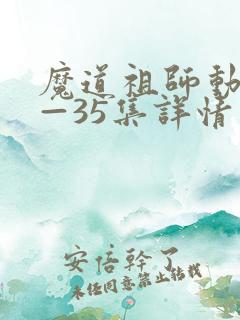 魔道祖師動
—35集詳情
安倍幹了
未任同意禁止轉載